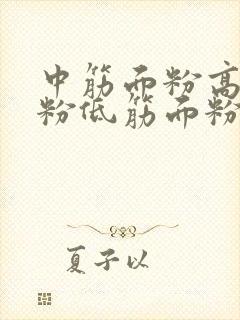 中筋面粉高
粉低筋面粉
夏子以